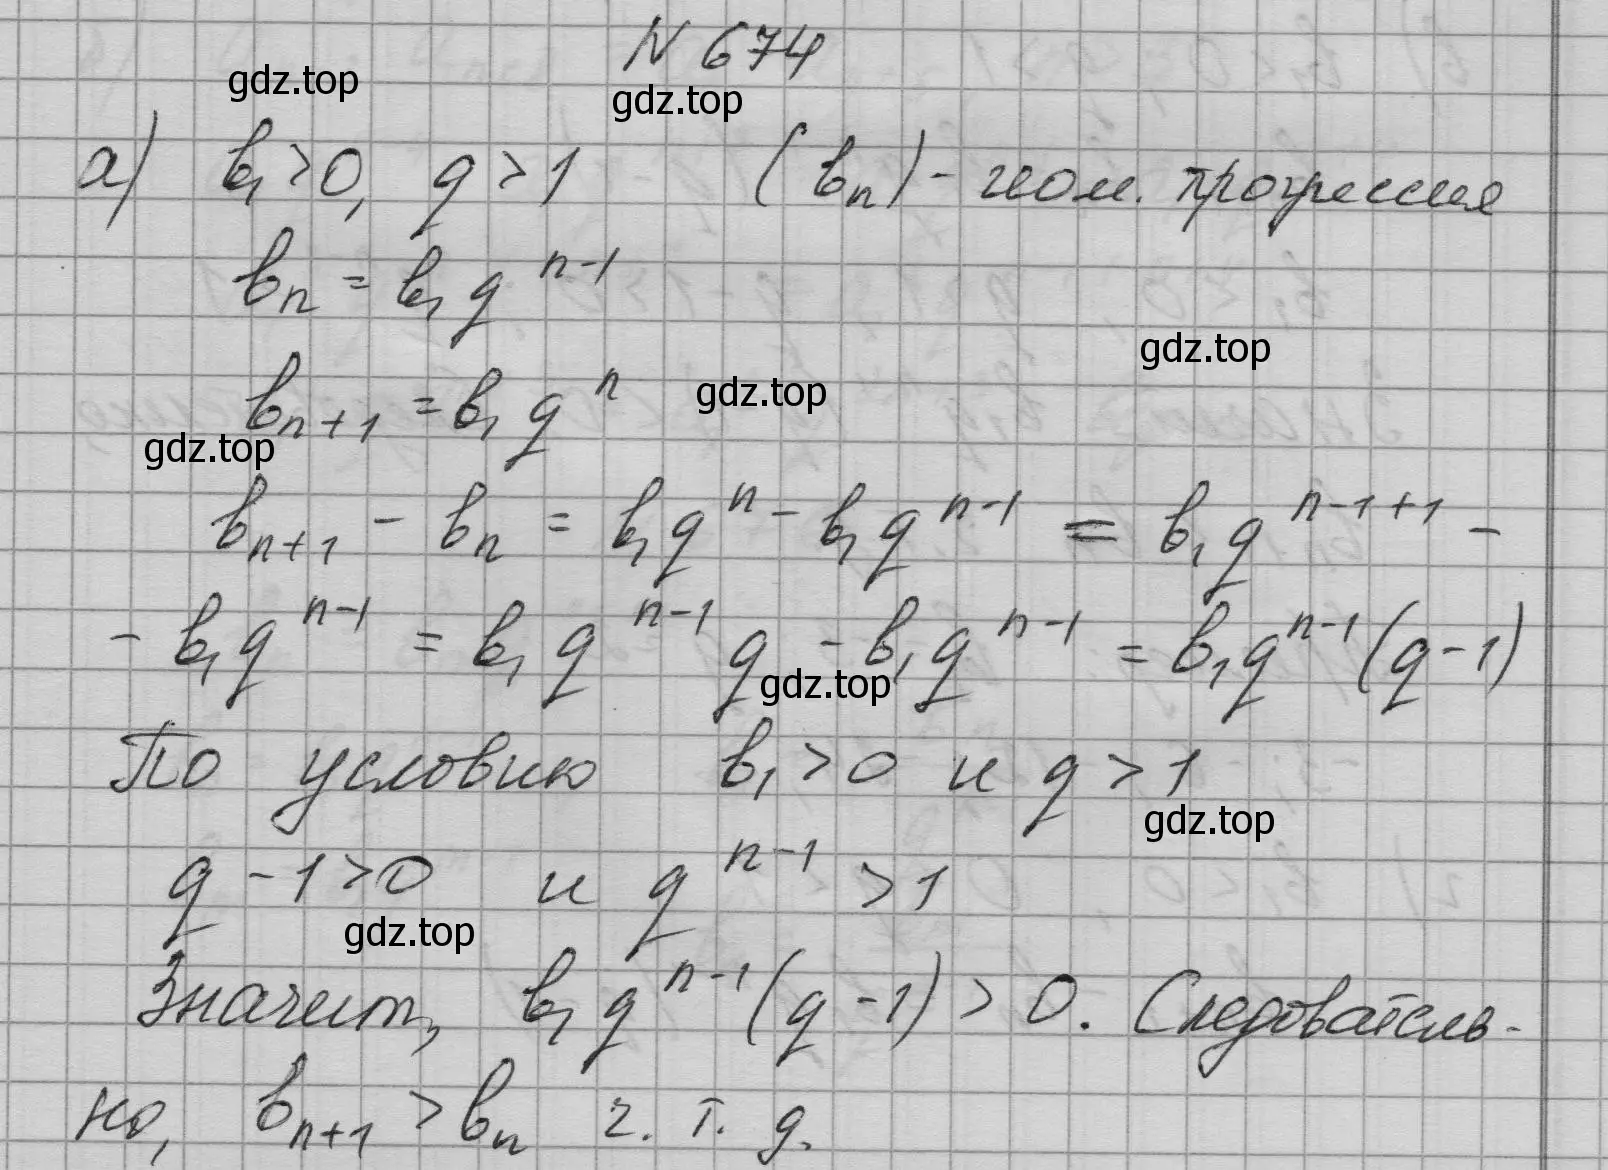 N 674
gdz.top
gdz.top
а) b₁ > 0, q > 1 (bₙ) - геом. прогрессия
bₙ = b₁qⁿ⁻¹
gdz.top
bₙ₊₁ = b₁qⁿ
gdz.top
gdz.top
bₙ₊₁ - bₙ = b₁qⁿ - b₁qⁿ⁻¹ = b₁qⁿ⁻¹⁺¹ -
- b₁qⁿ⁻¹ = b₁qⁿ⁻¹q - b₁qⁿ⁻¹ = b₁qⁿ⁻¹(q-1)
gdz.top
По условию b₁ > 0 и q > 1
gdz.top
q - 1 > 0 и qⁿ⁻¹ > 1
gdz.top
Значит, b₁qⁿ⁻¹(q-1) > 0. Следователь-
но, bₙ₊₁ > bₙ ч. т. д.